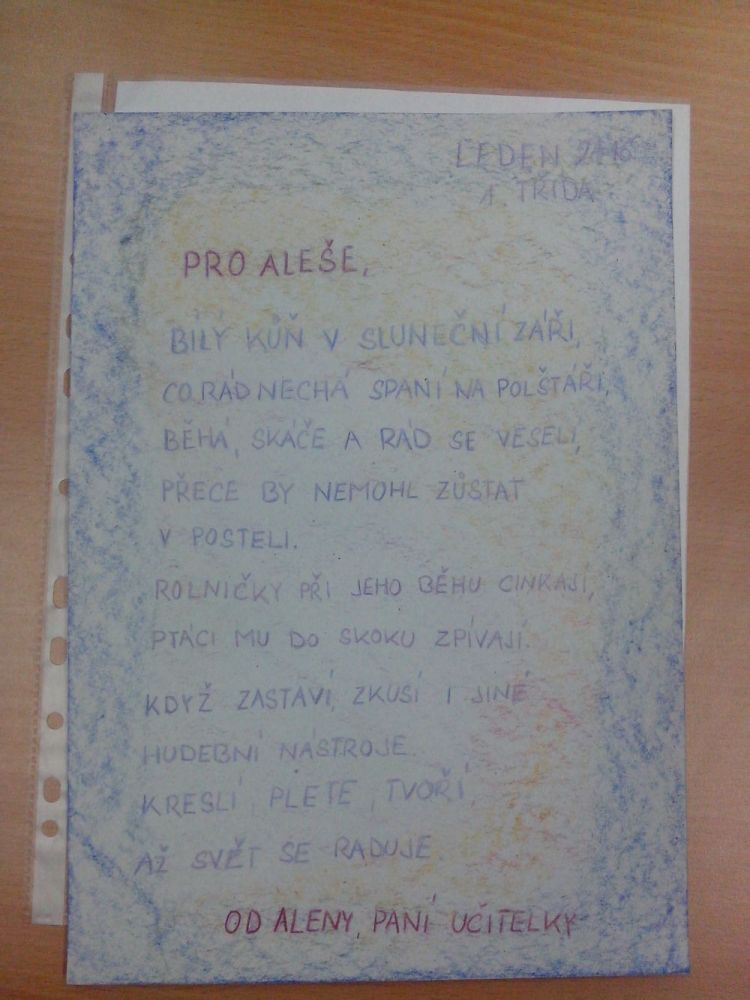 LEDEN 2016
1. TŘÍDA
PRO ALEŠE,
BÍLÝ KŮŇ V SLUNEČNÍ ZÁŘI,
CO RÁD NECHÁ SPANÍ NA POLŠTÁŘI,
BĚHÁ, SKÁČE A RÁD SE VESELÍ,
PŘECE BY NEMOHL ZŮSTAT
V POSTELI.
ROLNIČKY PŘI JEHO BĚHU CINKAJÍ,
PTÁCI MU DO SKOKU ZPÍVAJÍ.
KDYŽ ZASTAVÍ, ZKUSÍ I JINÉ
HUDEBNÍ NÁSTROJE.
KRESLÍ, PLETE, TVOŘÍ,
AŽ SVĚT SE RADUJE.
OD ALENY, PANÍ UČITELKY